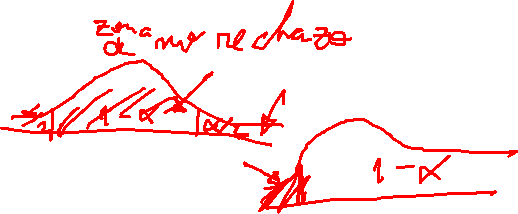 zona
de no rechazo
1-α α/2
1-α